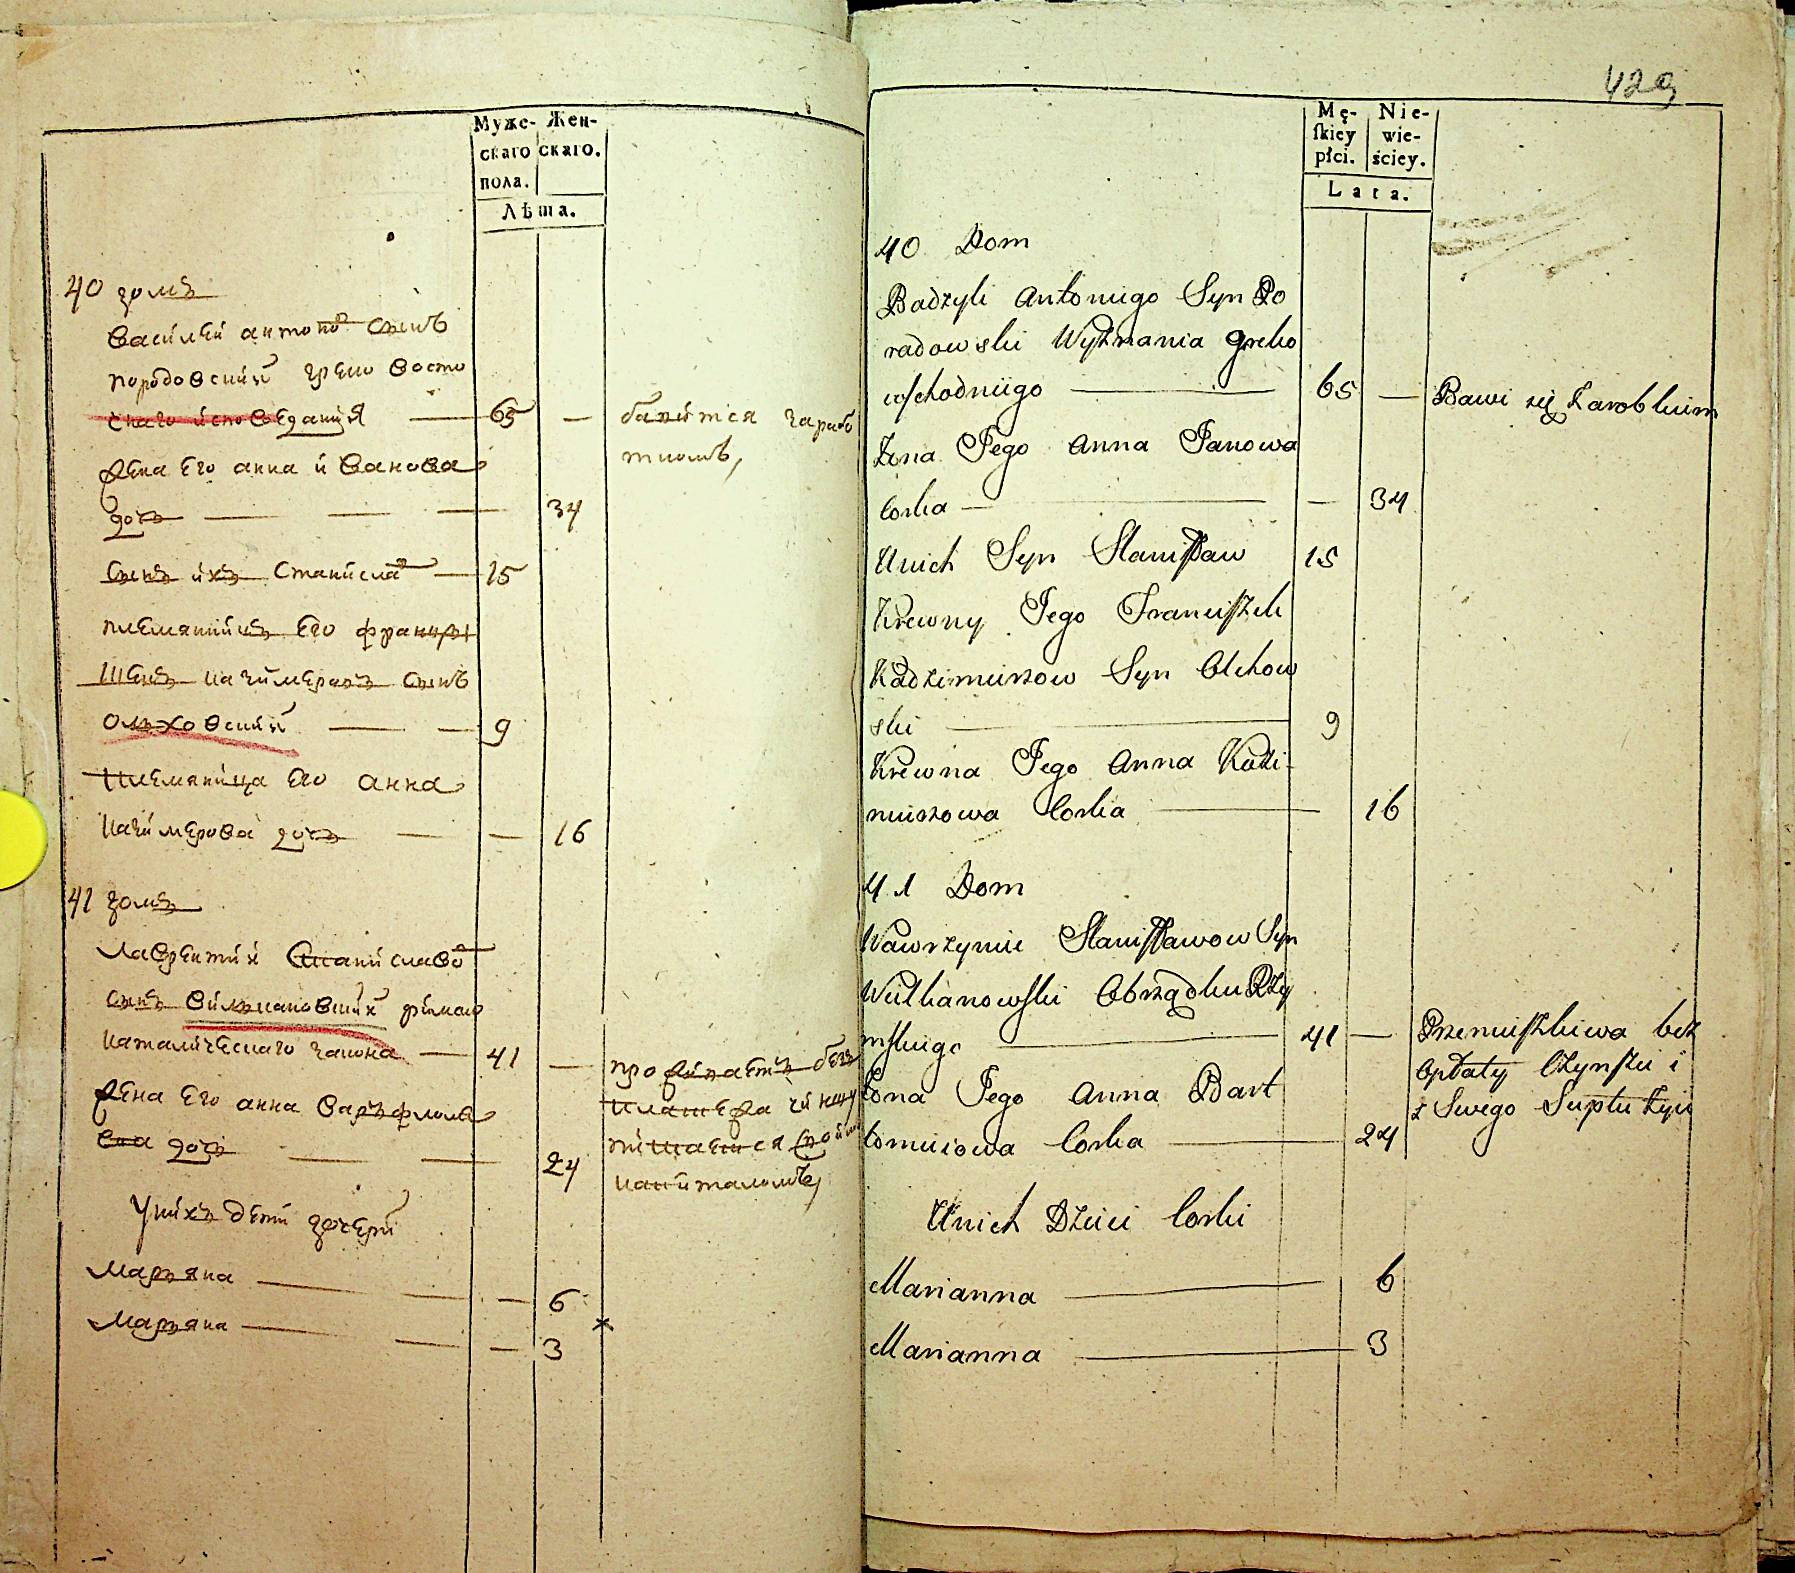 Муже- Жен-
скаго скаго.
пола.
Лѣта.
40 домъ
Василей антоновъ сынъ
породовский греко восто
чнаго исповедания — 65 — бавится зараб
откомъ,
жена Его анна ивановa
дочь — — — 34
сынъ ихъ Станиславъ — 15
племянникъ Его францы
шекъ казимеровъ сынъ
ольховский — — 9
племяница Его анна
казимерова дочь — — 16
41 домъ
Лаврентий Станиславовъ
сынъ вильканов­ский римско
католическаго закона — 41 — проживаетъ безъ
платежа чиншу
жена Его анна варфломе
ева дочь — — 24
питается своим
капиталомъ,
У нихъ дети дочери
Марьяна — — — 6
Марьяна — — — 3
429
Mę- Nie-
ſkiey wie-
płci. ściey.
Lata.
40 Dom
Badzyli Antoniego Syn Po
radowski Wyznania Greko
wschodniego — 65 — Bawi się Zarobkiem
Żona Jego Anna Janowa
Corka — — 34
Unich Syn Stanisław 15
Krewny Jego Franciszek
Kadzimierzow Syn Olchow
ski — 9
Krewna Jego Anna Kazi-
mierzowa Corka — 16
41 Dom
Wawrzynie Stanisławow Syn
Wilkanowski Obrządku Rzy
mskiego — 41 — Przemieszkiwa bez
opłaty Czynszu i
Żona Jego Anna Bart
z Swego Suptu żyie
łomieiowa Corka — 24
Unich Dzieci Corki
Marianna — 6
Marianna — 3